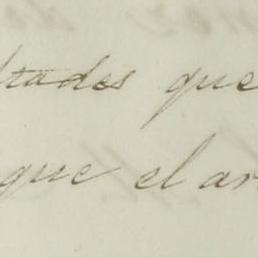 ltados que
que el ar